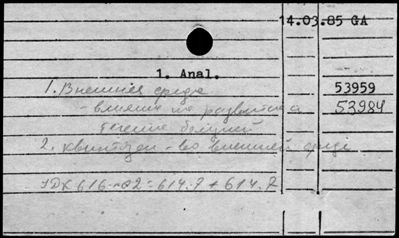 14.03.85 GA
1. Anal.
1. Внешняя среда 53959
- влияние на развитие и 53984
течение болезней
2. квинтозен - во внешней среде
УДК 616-02 : 614.7 + 614.7